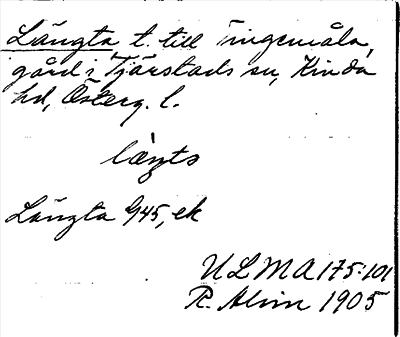 Längta t. till Ingemåla,
gård i Tjärstads sn, Kinda
hd, Österg. l.
làŋta
Längta 945, ek
ULMA 175:101
R. Alvin 1905